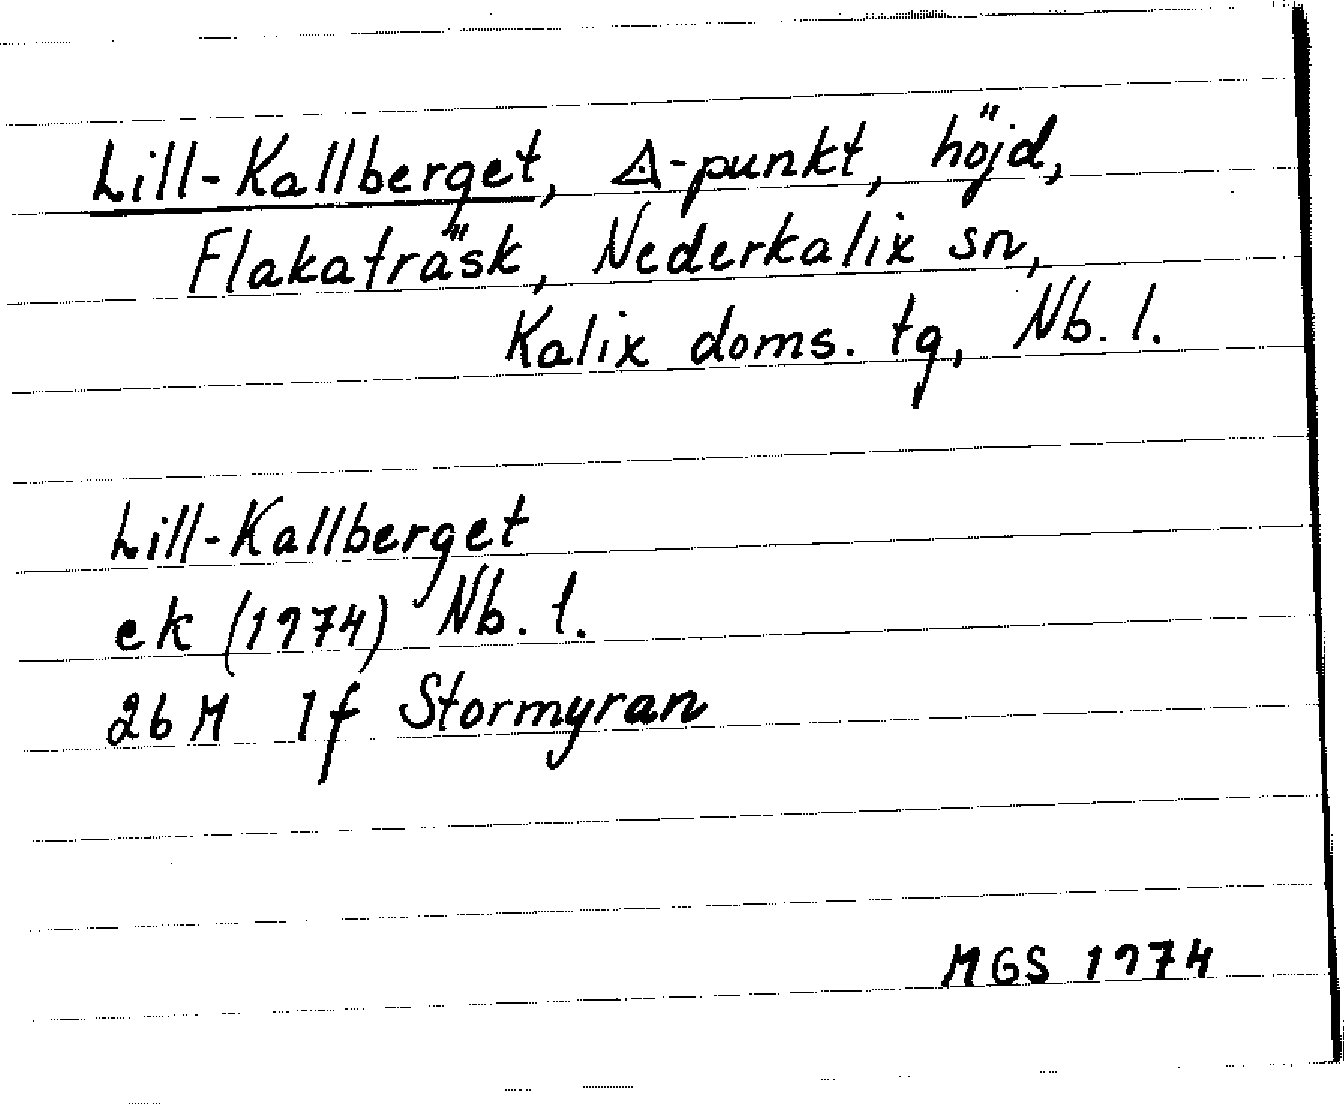 Lill-Kallberget, ◬-punkt, höjd,
Flakaträsk, Nederkalix sn,
Kalix doms. tg, Nb. l.
Lill-Kallberget
ek (1974) Nb. l.
26 M 1f Stormyran
MGS 1974